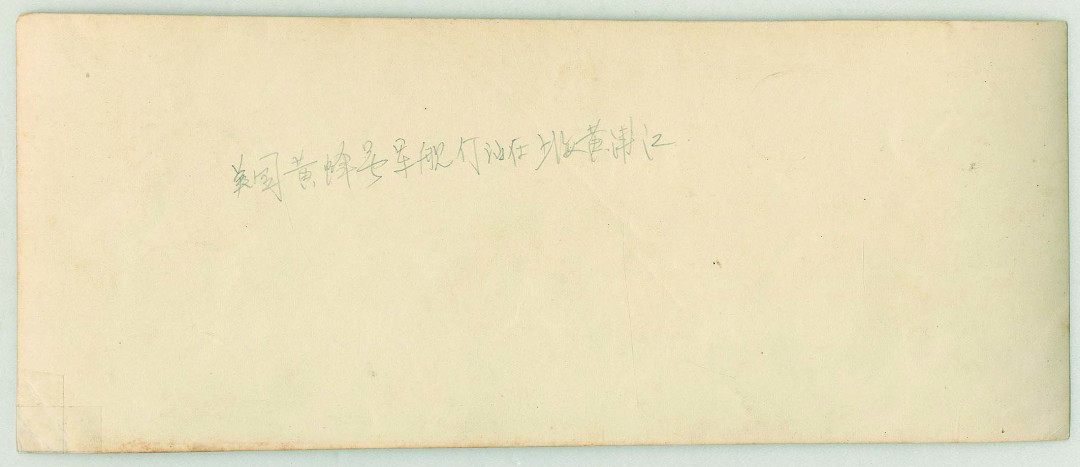 英国黄蜂号军舰停泊在上海黄浦江